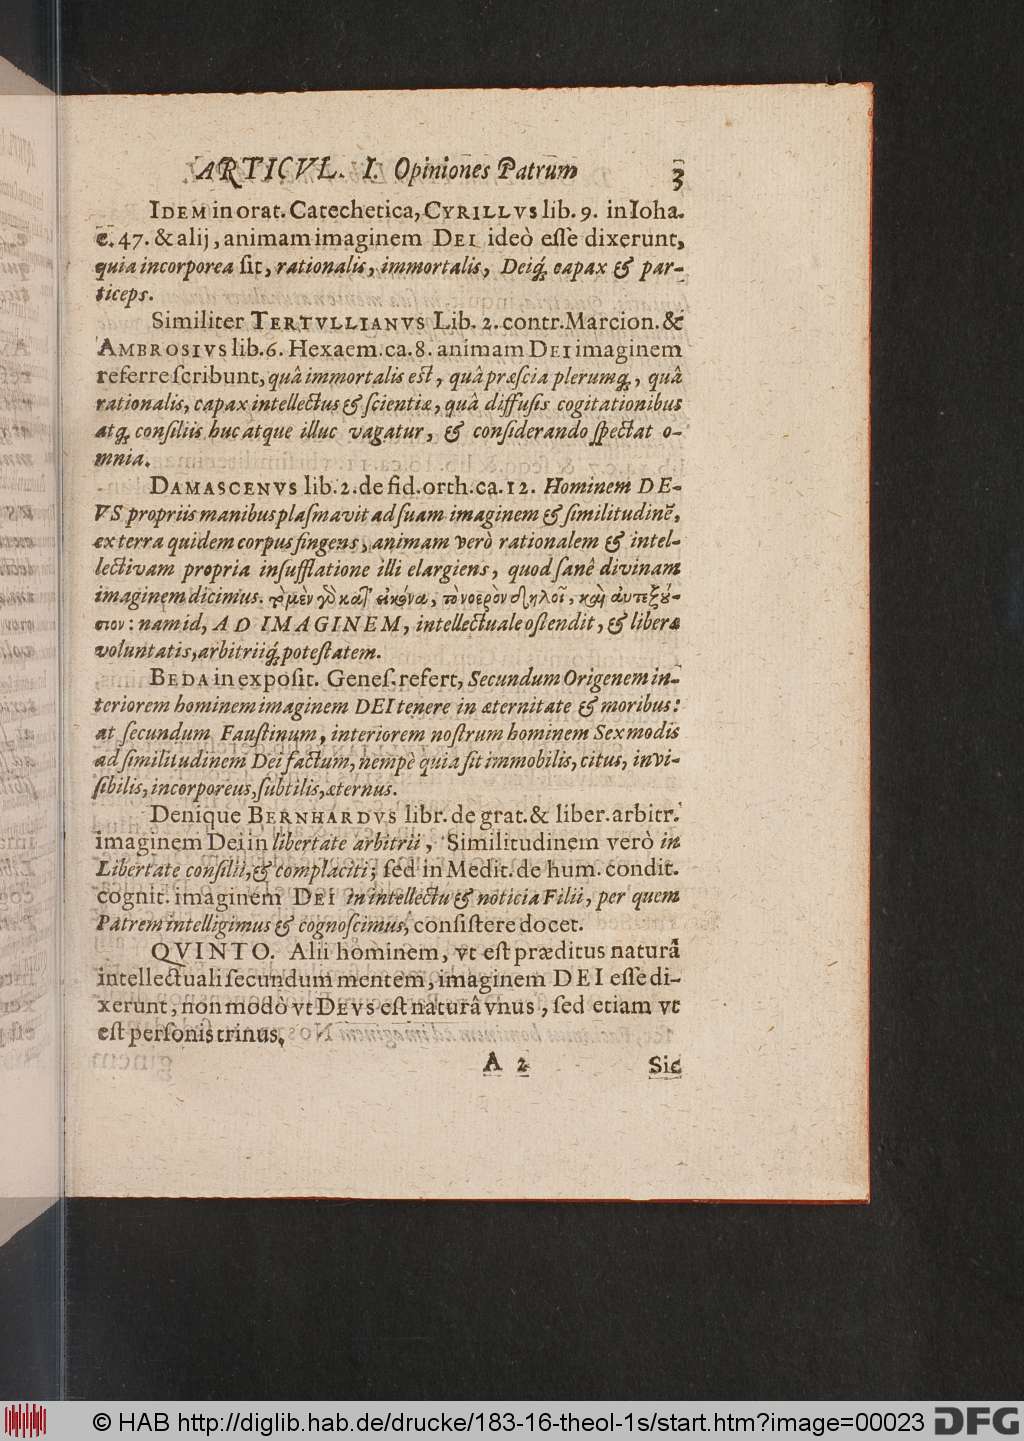 ARTICVL. I. Opiniones Patrum 3
IDEM in orat. Catechetica, CYRILLVS lib. 9. in Ioha.
c. 47. & alij, animam imaginem DEI ideò esse dixerunt,
quia incorporea sit, rationalis, immortalis, Deiq́; capax & par-
ticeps.
Similiter TERTVLLIANVS Lib. 2. contr. Marcion. &
AMBROSIVS lib. 6. Hexaem. ca. 8. animam DEI imaginem
referre scribunt, quâ immortalis est, quâ præscia plerumq;, quâ
rationalis, capax intellectus & scientiæ, quâ diffusis cogitationibus
atq; consiliis huc atque illuc vagatur, & considerando spectat o-
mnia.
DAMASCENVS lib. 2. de fid. orth. ca. 12. Hominem DE-
VS propriis manibus plasmavit ad suam imaginem & similitudinē,
ex terra quidem corpus fingens, animam verò rationalem & intel-
lectivam propria insufflatione illi elargiens, quod sanê divinam
imaginem dicimus. τὸ μὲν γὸ κατ' εἰκόνα, τὸ νοερὸν δηλοῖ, καὶ αὐτεξού-
σιον: nam id, AD IMAGINEM, intellectuale ostendit, & liberæ
voluntatis, arbitriiq́; potestatem.
BEDA in exposit. Genes. refert, Secundum Origenem in-
teriorem hominem imaginem DEI tenere in æternitate & moribus:
at secundum Faustinum, interiorem nostrum hominem Sex modis
ad similitudinem Dei factum, nempè quia sit immobilis, citus, invi-
sibilis, incorporeus, subtilis, æternus.
Denique BERNHARDVS libr. de grat. & liber. arbitr.
imaginem Dei in libertate arbitrii, Similitudinem verò in
Libertate consilii, & complaciti; sed in Medit. de hum. condit.
cognit. imaginem DEI in intellectu & noticia Filii, per quem
Patrem intelligimus & cognoscimus, consistere docet.
QVINTO. Alii hominem, vt est præditus naturâ
intellectuali secundum mentem, imaginem DEI esse di-
xerunt, non modò vt DEVS est naturâ vnus, sed etiam vt
est personis trinus.
A 2 Sic
© HAB http://diglib.hab.de/drucke/183-16-theol-1s/start.htm?image=00023 DFG